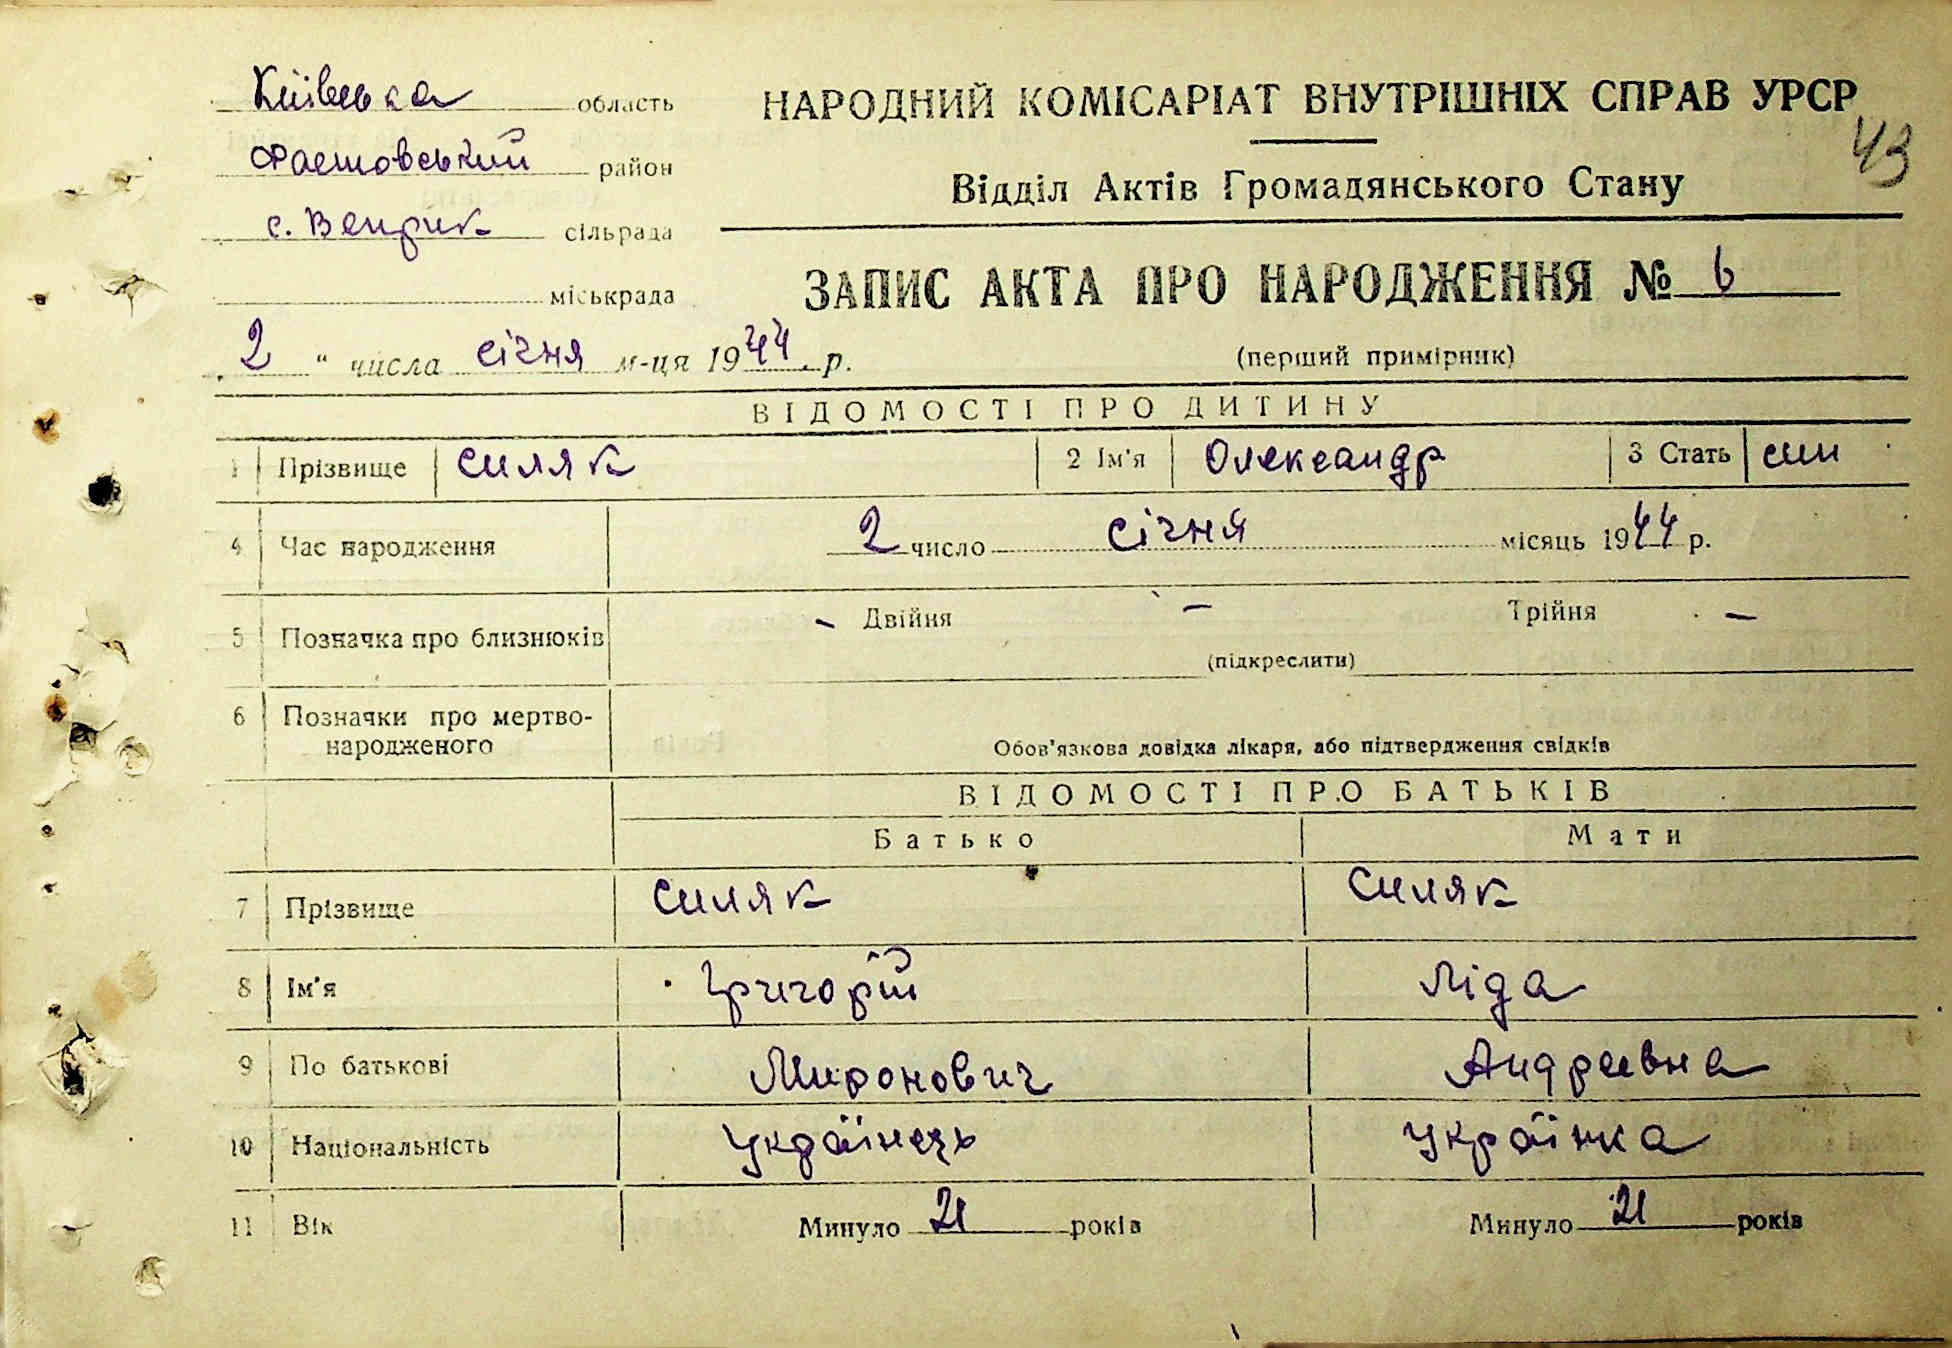 Київська область
НАРОДНИЙ КОМІСАРІАТ ВНУТРІШНІХ СПРАВ УРСР
43
Фастовський район
Відділ Актів Громадянського Стану
с. Веприк сільрада
міськрада
ЗАПИС АКТА ПРО НАРОДЖЕННЯ № 6
2 " числа січня м-ця 1944 р.
(перший примірник)
ВІДОМОСТІ ПРО ДИТИНУ
1 Прізвище Силяк 2 Ім'я Олександр 3 Стать син
4 Час народження 2 число січня місяць 1944 р.
5 Позначка про близнюків - Двійня - Трійня -
(підкреслити)
6 Позначки про мертво-
народженого
Обов'язкова довідка лікаря, або підтвердження свідків
ВІДОМОСТІ ПРО БАТЬКІВ
Батько Мати
7 Прізвище Силяк Силяк
8 Ім'я Григорій Ліда
9 По батькові Миронович Андреевна
10 Національність Українець Українка
11 Вік Минуло 21 років Минуло 21 років